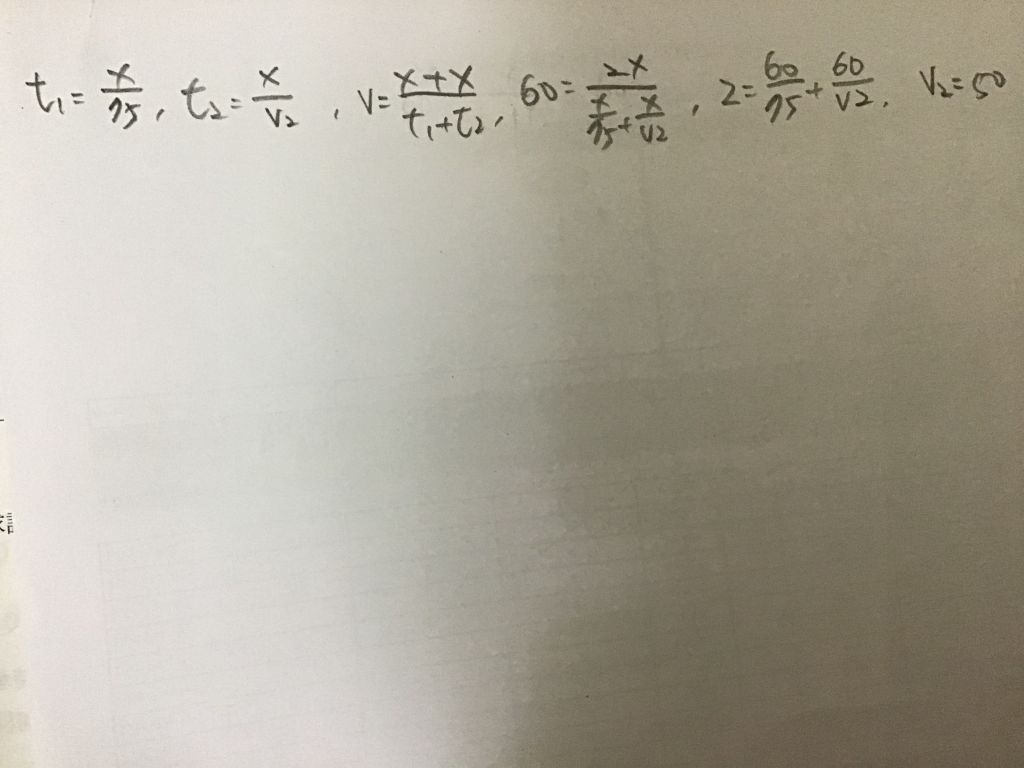 t₁=x/75, t₂=x/v₂, v=(x+x)/(t₁+t₂), 60=2x/(x/75+x/v2), 2=60/75+60/v2, v₂=50